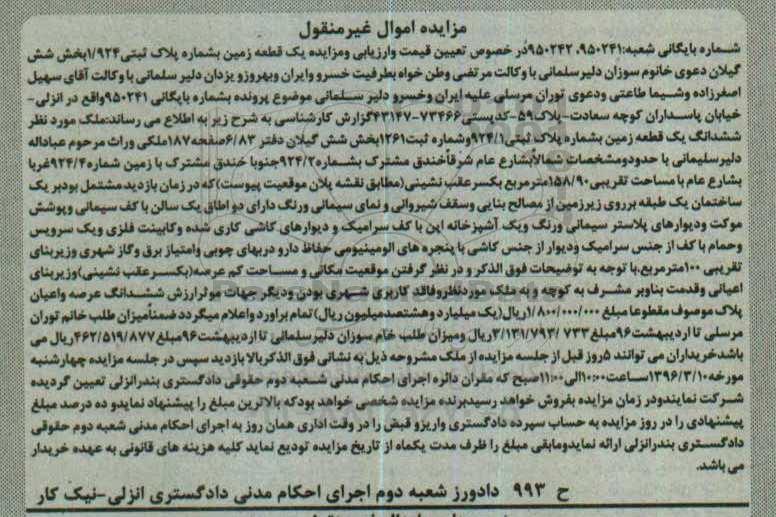 مزایده اموال غیرمنقول
شماره بایگانی شعبه:۹۵۰۲۴۱، ۹۵۰۲۴۲در خصوص تعیین قیمت وارزیابی ومزایده یک قطعه زمین بشماره پلاک ثبتی۱/۹۲۴بخش شش
گیلان دعوی خانوم سوزان دلیرسلمانی با وکالت مرتضی وطن خواه بطرفیت خسرو وایران وبهروزو یزدان دلیر سلمانی با وکالت آقای سهیل
اصغرزاده وشیما طاعتی ودعوی توران مرسلی علیه ایران وخسرو دلیر سلمانی موضوع پرونده بشماره بایگانی ۹۵۰۲۴۱واقع در انزلی-
خیابان پاسداران کوچه سعادت-پلاک۵۹-کدپستی۷۳۴۶۶-۴۳۱۴۷گزارش کارشناسی به شرح زیر به اطلاع می رساند:ملک مورد نظر
ششدانگ یک قطعه زمین بشماره پلاک ثبتی۹۲۴/۱وشماره ثبت۱۲۶۱بخش شش گیلان دفتر ۶/۸۳صفحه۱۸۷ملکی وراث مرحوم عباداله
دلیرسلیمانی با حدودومشخصات شمالاًبشارع عام شرقاًخندق مشترک بشماره۹۲۴/۲جنوبا خندق مشترک با زمین شماره۹۲۴/۴غربا
بشارع عام با مساحت تقریبی۱۵۸/۹۰مترمربع بکسرعقب نشینی(مطابق نقشه پلان موقعیت پیوست)که در زمان بازدید مشتمل بودبر یک
ساختمان یک طبقه برروی زیرزمین از مصالح بنایی وسقف شیروانی و نمای سیمانی ورنگ دارای دو اطاق یک سالن با کف سیمانی وپوشش
موکت ودیوارهای پلاستر سیمانی ورنگ ویک آشپزخانه اپن با کف سرامیک و دیوارهای کاشی کاری شده وکابینت فلزی ویک سرویس
وحمام با کف از جنس سرامیک ودیوار از جنس کاشی با پنجره های الومینیومی حفاظ دارو دربهای چوبی وامتیاز برق وگاز شهری وزیربنای
تقریبی ۱۰۰مترمربع.با توجه به توضیحات فوق الذکر و در نظر گرفتن موقعیت مکانی و مساحت کم عرصه(بکسرعقب نشینی)وزیربنای
اعیانی وقدمت بناوبر مشرف به کوچه و به ملک موردنظروفاقد کاربری شهری بودن ودیگر جهات موثرارزش ششدانگ عرصه واعیان
پلاک موصوف مقطوعا مبلغ ۱/۸۰۰/۰۰۰/۰۰۰ریال(یک میلیارد وهشتصدمیلیون ریال)تمام براورد واعلام میگرددضمناًمیزان طلب خانم توران
مرسلی تا اردیبهشت۹۶مبلغ۳/۱۳۱/۷۹۳/ ۷۳۳ریال ومیزان طلب خانم سوزان دلیرسلمانی تا اردیبهشت۹۶مبلغ۴۶۲/۵۱۹/۸۷۷ریال می
باشدخریداران می توانند ۵روز قبل از جلسه مزایده از ملک مشروحه ذیل به نشانی فوق الذکربالا بازدید سپس در جلسه مزایده چهارشنبه
مورخه۱۳۹۶/۳/۱۰ساعت۱۰:۰۰الی۱۱:۰۰صبح که مقران دائره اجرای احکام مدنی شعبه دوم حقوقی دادگستری بندرانزلی تعیین گردیده
شرکت نمایندودر زمان مزایده بفروش خواهد رسیدبرنده مزایده شخصی خواهد بودکه بالاترین مبلغ را پیشنهاد نمایدو ده درصد مبلغ
پیشنهادی را در روز مزایده به حساب سپرده دادگستری واریزو قبض را در وقت اداری همان روز به اجرای احکام مدنی شعبه دوم حقوقی
دادگستری بندرانزلی ارائه نمایدومابقی مبلغ را ظرف مدت یکماه از تاریخ مزایده تودیع نماید کلیه هزینه های قانونی به عهده خریدار
می باشد.
ح ۹۹۳ دادورز شعبه دوم اجرای احکام مدنی دادگستری انزلی-نیک کار